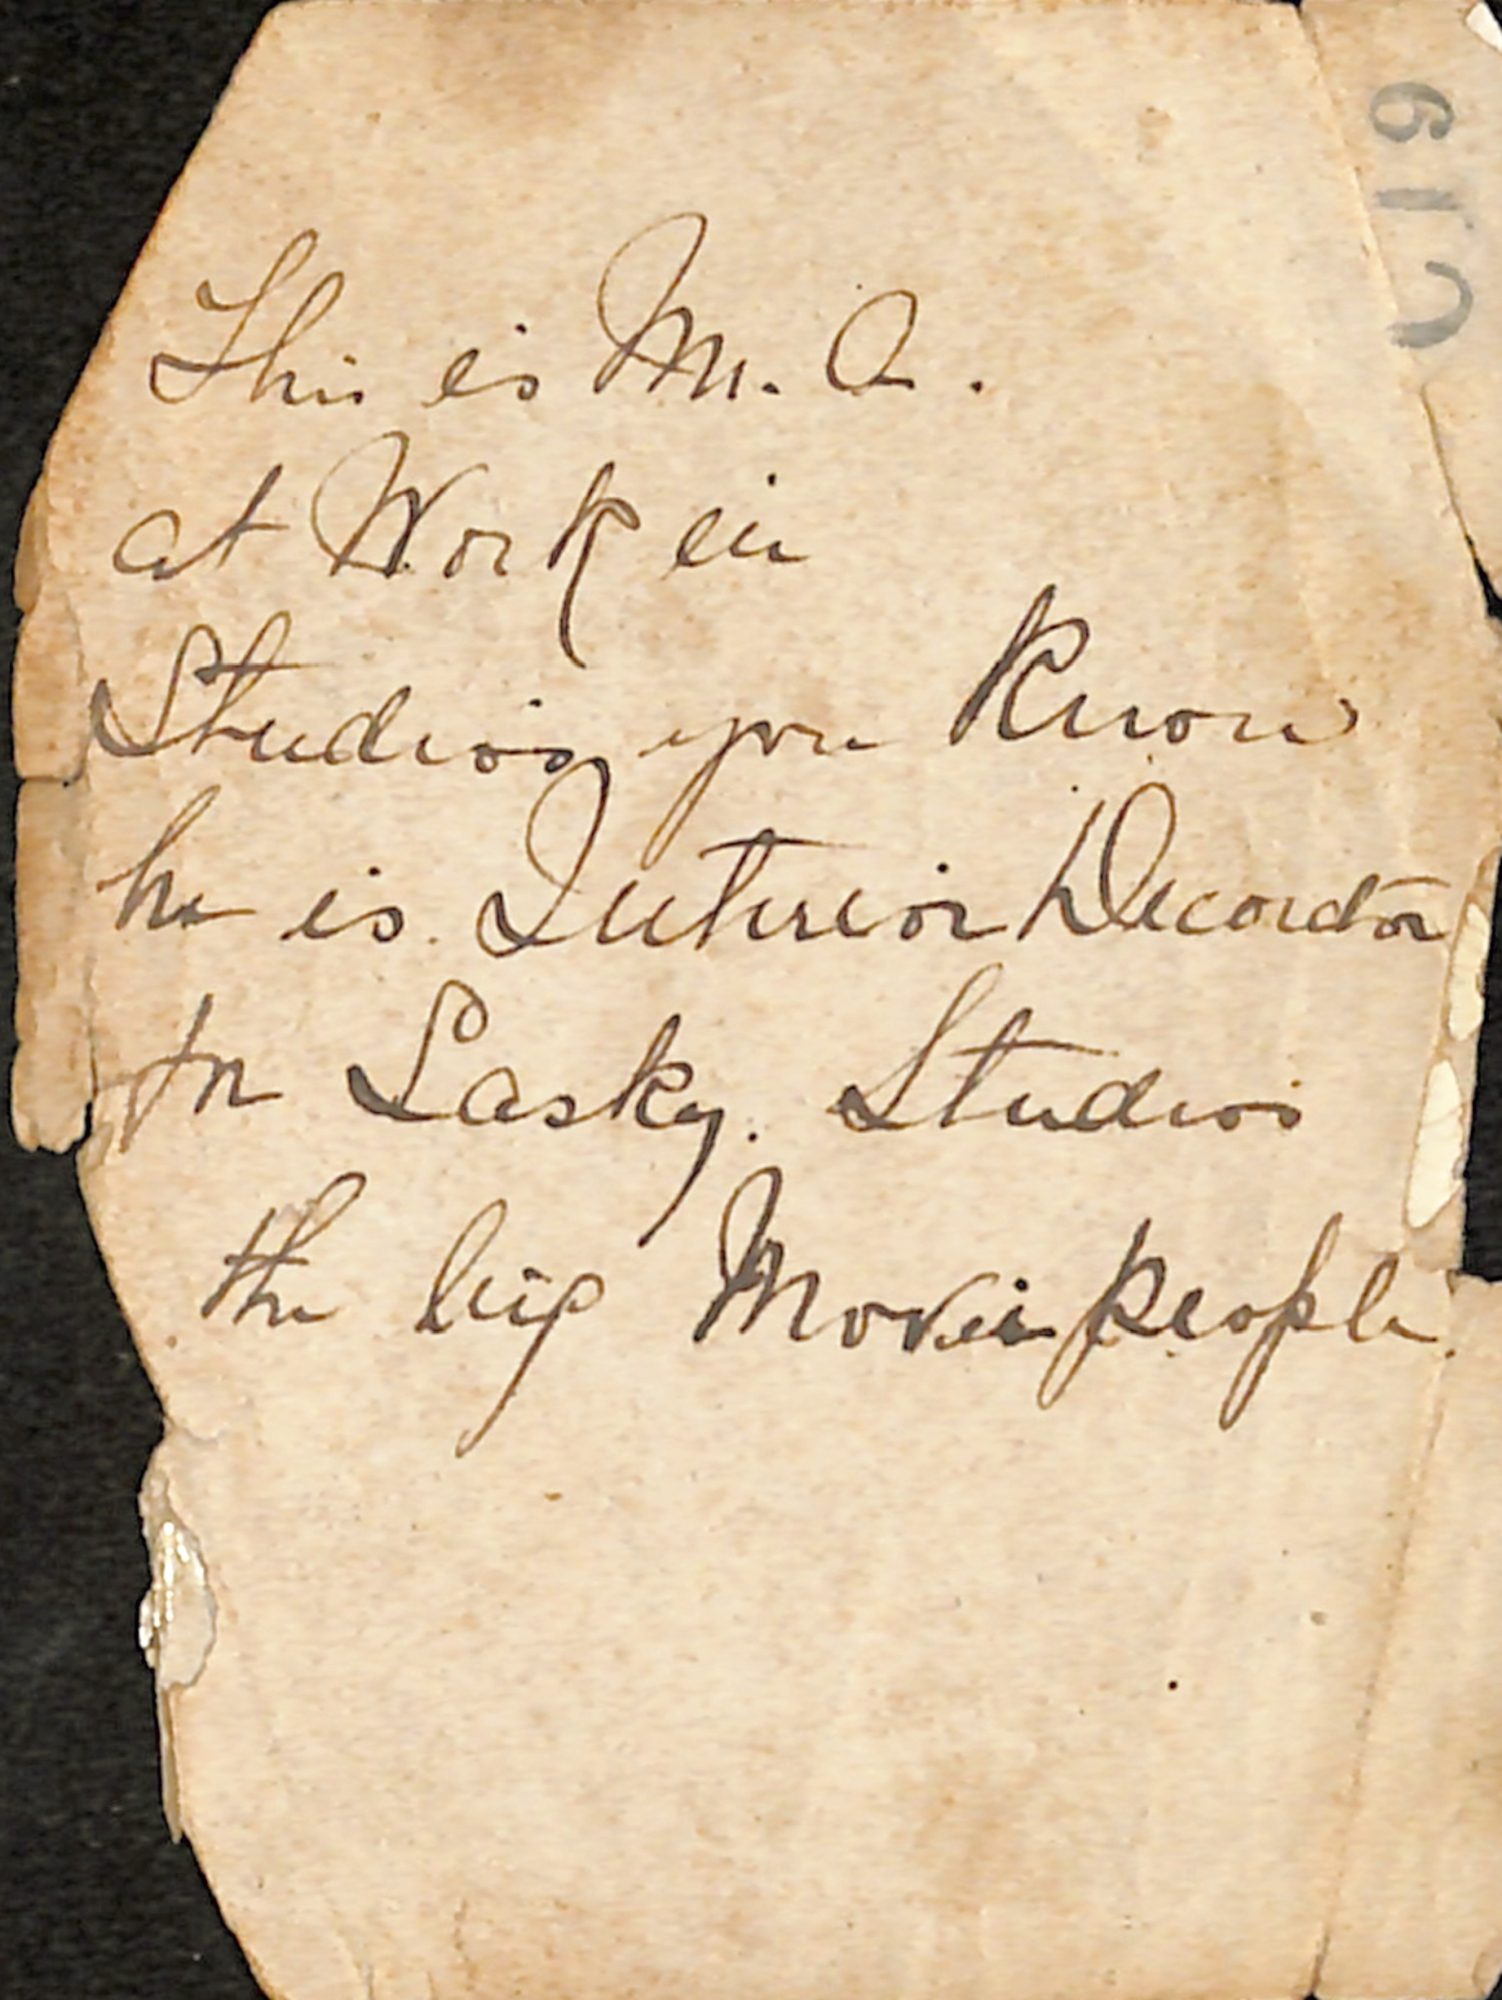 This is Mr. A.
at Work in
Studios you Know
he is Interior Decorator
in Lasky. Studios
the big Movie people.